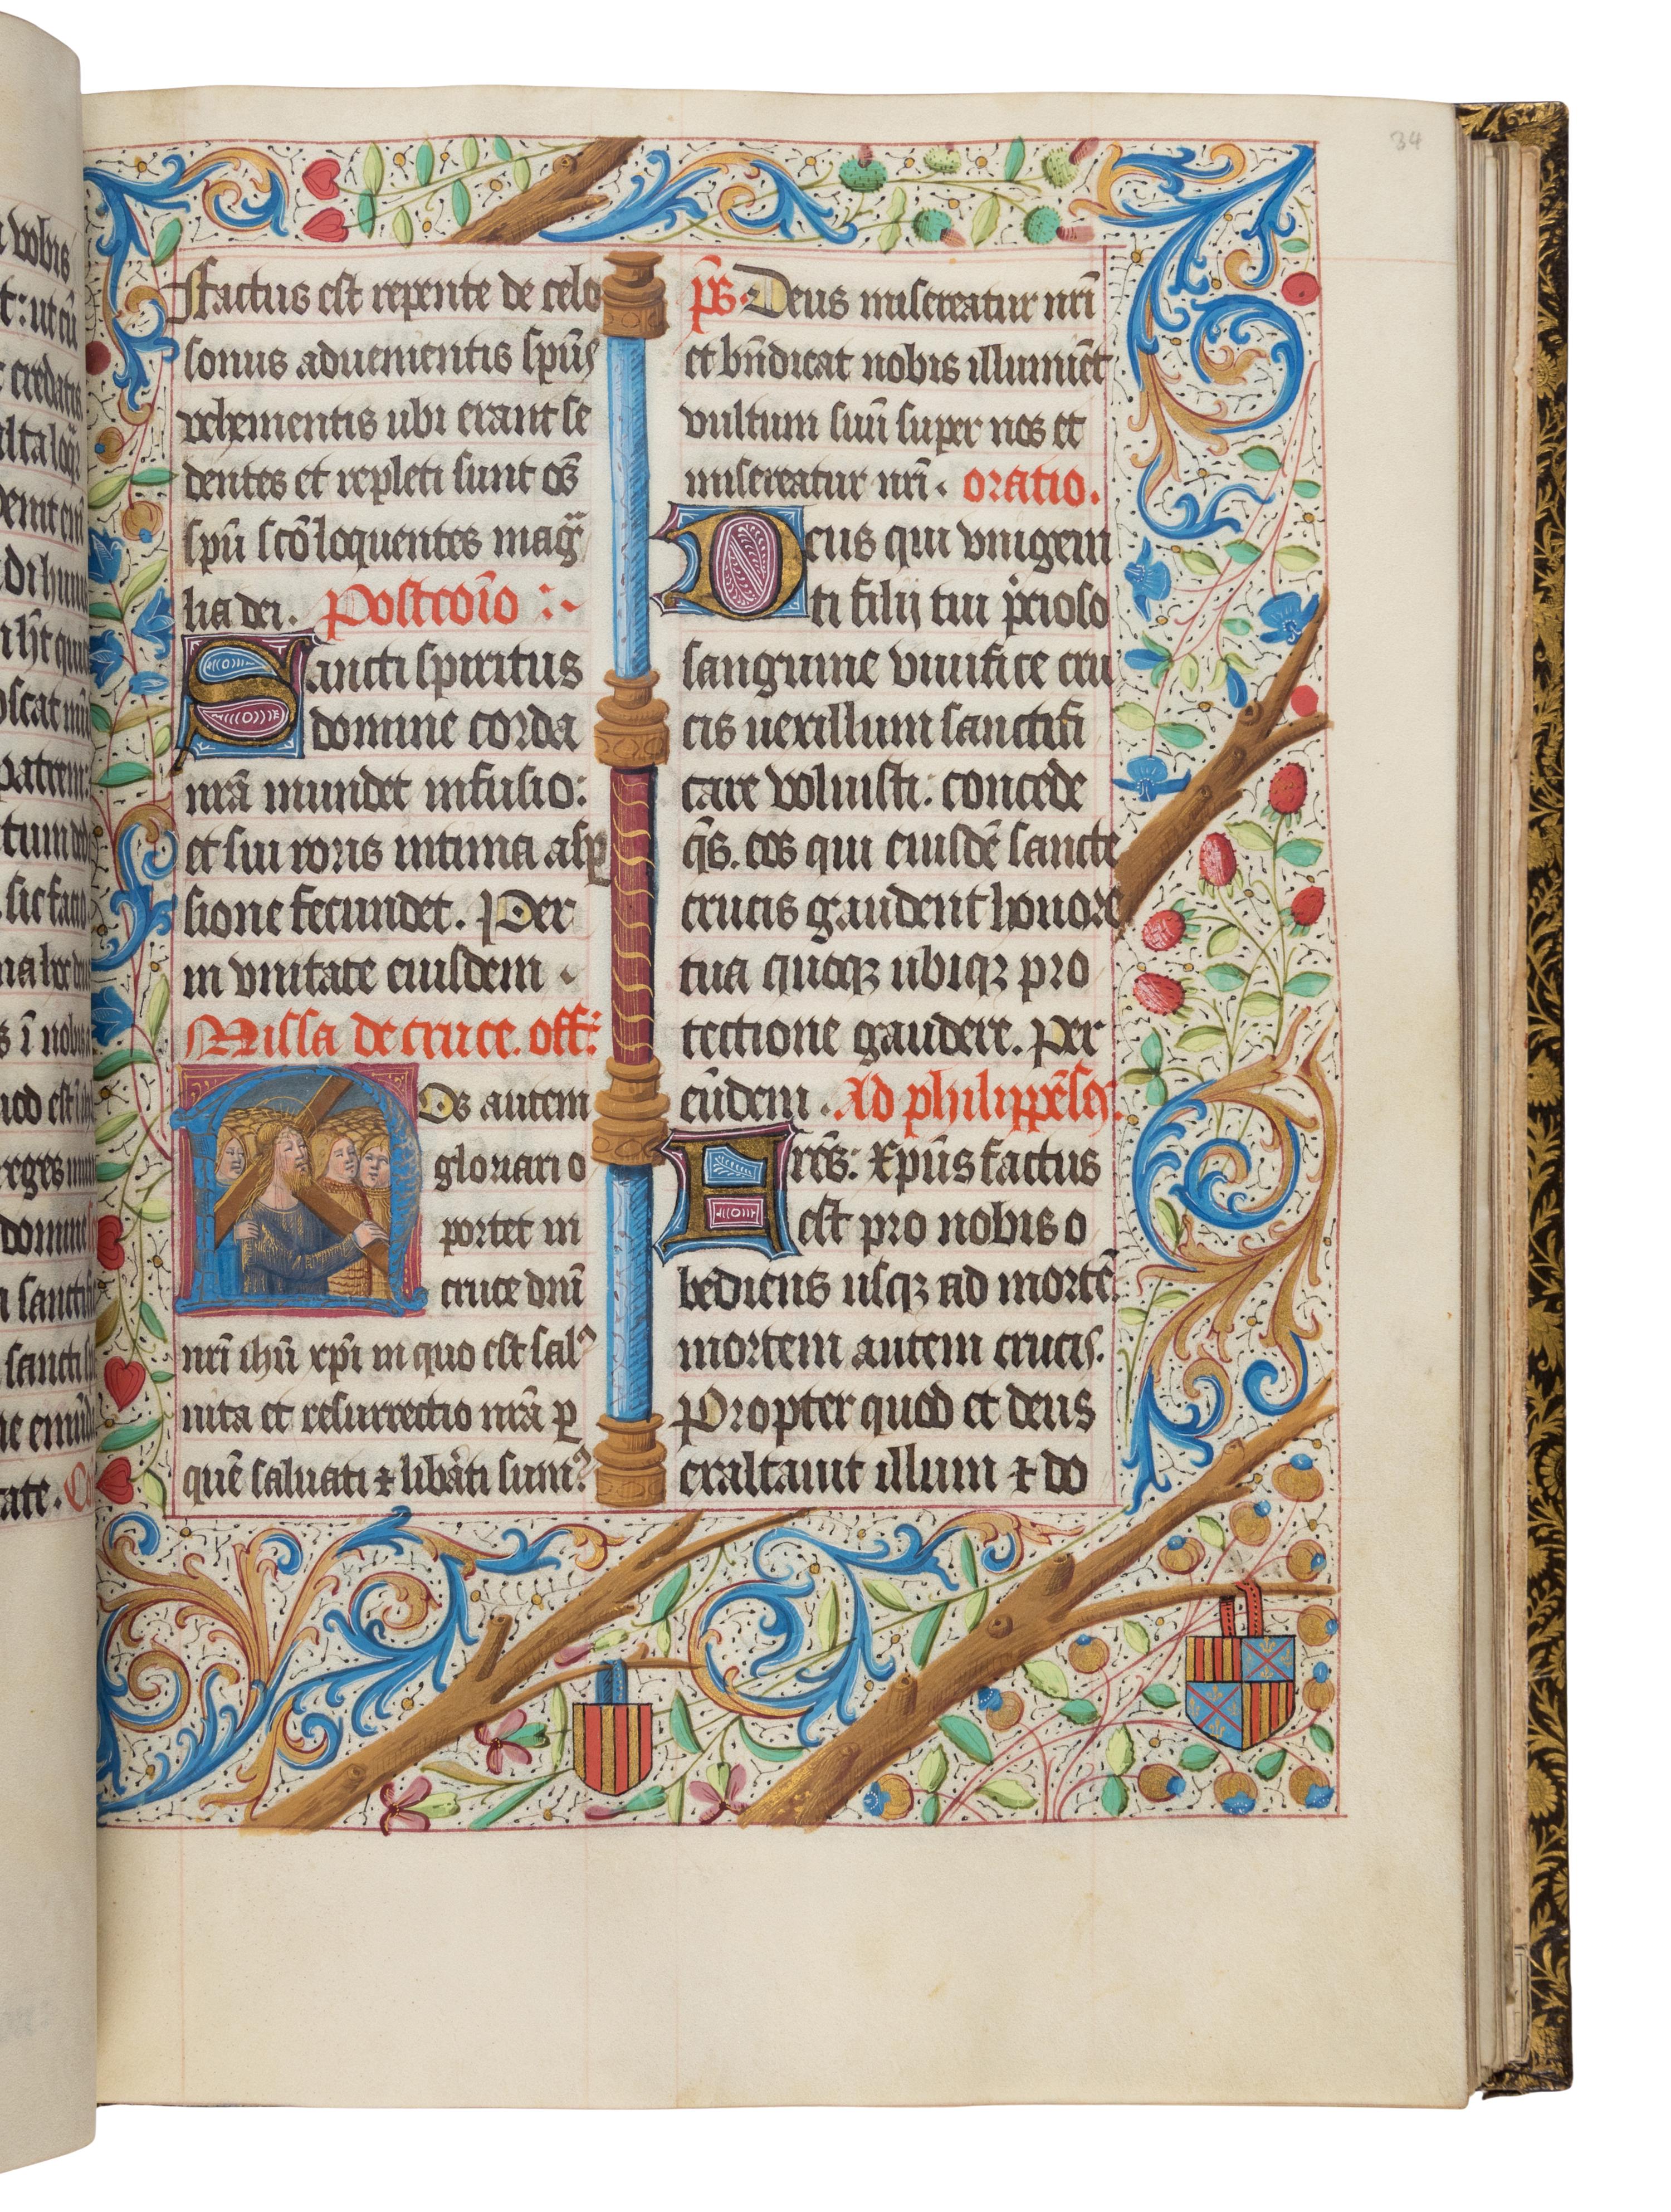 34
Factus est repente de celo
sonus aduenientis spūs
vehementis ubi erant se
dentes et repleti sunt oēs
spū scō loquentes mag
lia dei. Postcōio :-
Sancti spiritus
domine corda
nrā mundet infusio:
et sui roris intima asp
sione fecundet. Per
in vnitate eiusdem .
Missa de cruce. off:
Nos autem
gloriari o
portet in
cruce dnī
nrī ihū xp̄i in quo est sal⁹
uita et resurrectio nrā p
quē saluati ⁊ libāti sum⁹
ps. Deus misereatur nrī
et bn̄dicat nobis illumiēt
vultum suū super nos et
misereatur nrī. oratio.
Deus qui vnigeni
ti filij tui p̄cioso
sanguine viuifice cru
cis uexillum sanctifi
care voluisti: concede
q̄s. eos qui eiusdē sancte
crucis gaudent honore
tua quoqꝫ ubiqꝫ pro
tectione gaudere. per
eūdem. Ad philippēs
Frēs: xp̄us factus
est pro nobis o
bediens usqꝫ ad mortē.
mortem autem crucis.
Propter quod et deus
exaltauit illum ⁊ do